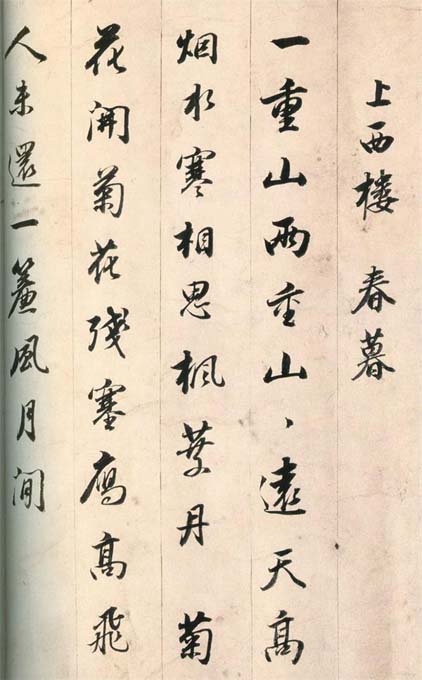 上西楼 春暮
一重山兩重山、遠天高
烟水寒相思楓葉丹 菊
花開菊花殘塞鴈高飛
人未還一簾風月閒